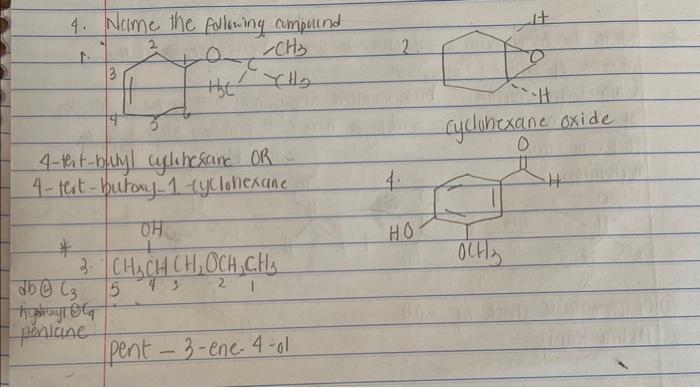 4. Name the following compound
1.
2
1
3
4
5
6
O
C
CH3
CH3
H3C
2.
H
O
H
cyclohexane oxide
4-tert-butyl cyclohexane OR
4-tert-butoxy-1-cyclohexane
4.
O
H
HO
OCH3
*
OH
3. CH3CHCH2OCH2CH3
5 4 3 2 1
db @ C3
hydroxyl @ C4
pentane
pent - 3-ene-4-ol